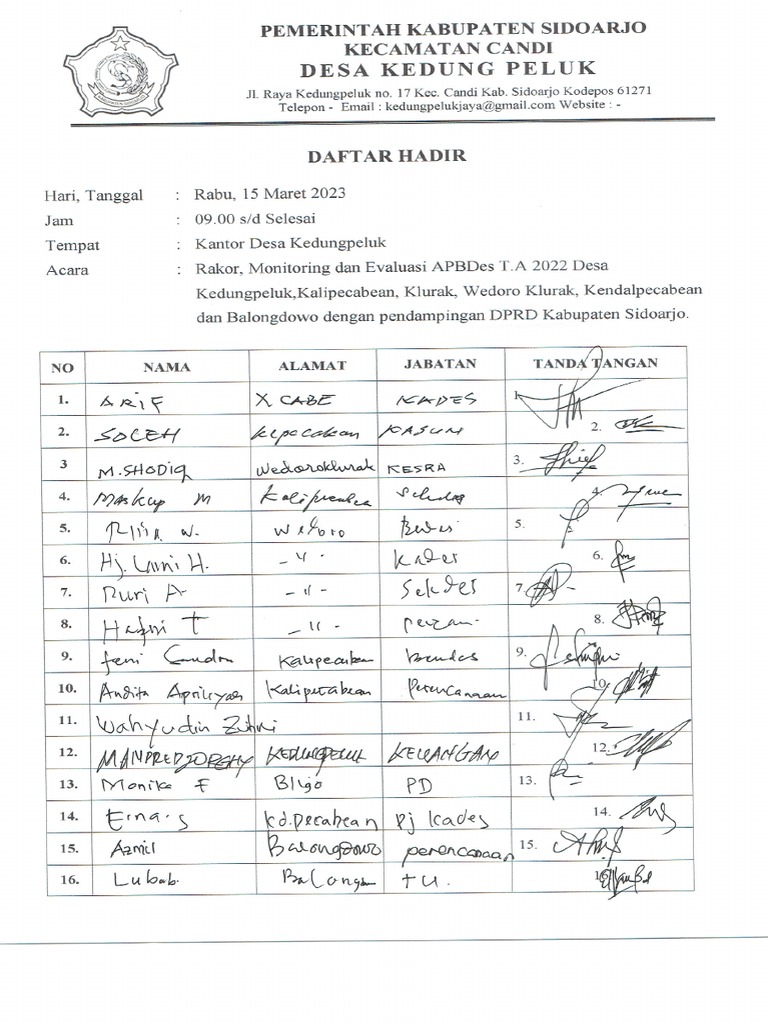 PEMERINTAH KABUPATEN SIDOARJO
KECAMATAN CANDI
DESA KEDUNG PELUK
Jl. Raya Kedungpeluk no. 17 Kec. Candi Kab. Sidoarjo Kodepos 61271
Telepon - Email : kedungpelukjaya@gmail.com Website : -
DAFTAR HADIR
Hari, Tanggal : Rabu, 15 Maret 2023
Jam : 09.00 s/d Selesai
Tempat : Kantor Desa Kedungpeluk
Acara : Rakor, Monitoring dan Evaluasi APBDes T.A 2022 Desa
Kedungpeluk,Kalipecabean, Klurak, Wedoro Klurak, Kendalpecabean
dan Balongdowo dengan pendampingan DPRD Kabupaten Sidoarjo.
NO NAMA ALAMAT JABATAN TANDA TANGAN
1. ARIF KADES 1
2. SOCEH KASUN 2.
3 M.SHODIQ Wedoroklurak KESRA 3.
4. 4.
5. W. Wedoro 5.
6. Hj. H. - " - Kades 6.
7. Ruri A - " - Sekdes 7.
8. T - " - 8.
9. Kalipecabean 9.
10. Andita Apriliyan Kalipecabean Perencanaan 10.
11. Wahyudin 11.
12. KEDUNGPELUK KEUANGAN 12.
13. Monika F Bligo PD 13.
14. Erna.s kd.pecabean Pj Kades 14.
15. Azmil Balongdowo perencanaan 15.
16. Lubab. TU. 16